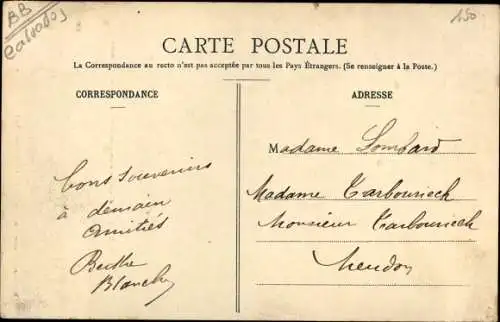 BB
Calvados
150
CARTE POSTALE
La Correspondance au recto n'est pas acceptée par tous les Pays Étrangers. (Se renseigner à la Poste.)
CORRESPONDANCE
bons souvenirs
à demain
amitiés
Berthe
Blanche
ADRESSE
Madame Lombard
Madame Tarbouriech
Monsieur Tarbouriech
Meudon